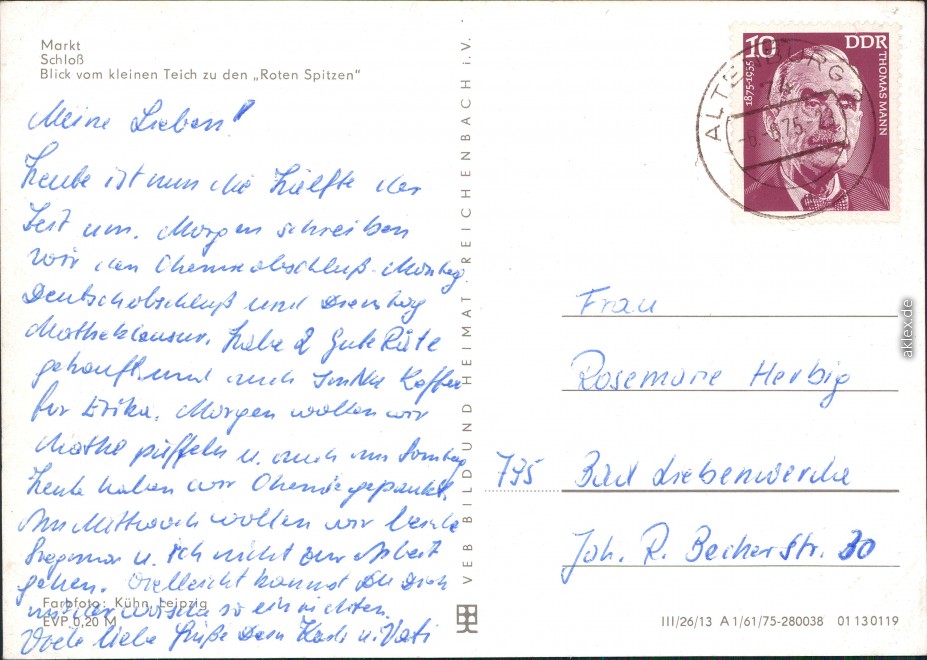 Markt
Schloß
Blick vom kleinen Teich zu den „Roten Spitzen“
Meine Lieben!
Heute ist nun die Hälfte der
Zeit um. Morgen schreiben
wir den Chemieabschluß. Montag
Deutschabschluß und Dienstag
Matheklausur. Habe 2 Gute Räte
gekauft und auch Kaffee
für Erika. Morgen wollen wir
Mathe püffeln u. auch am Sonntag
Heute haben wir Chemie gepaukt.
Am Mittwoch wollen wir beide
u. ich nicht zur Arbeit
gehen. Vielleicht kannst Du Dich
mit der so einrichten.
Viele liebe Grüße Dein u. Vati
Farbfoto: Kühn, Leipzig
EVP 0,20 M
VEB BILD UND HEIMAT · REICHENBACH i. V.
10 DDR
1875-1955
THOMAS MANN
ALTENBURG
-6.-6.75-
Frau
Rosemarie Herbig
795 Bad Liebenwerda
Joh. R. Becher str. 30
III/26/13 A 1/61/75-280038 01 13 0119
aklex.de